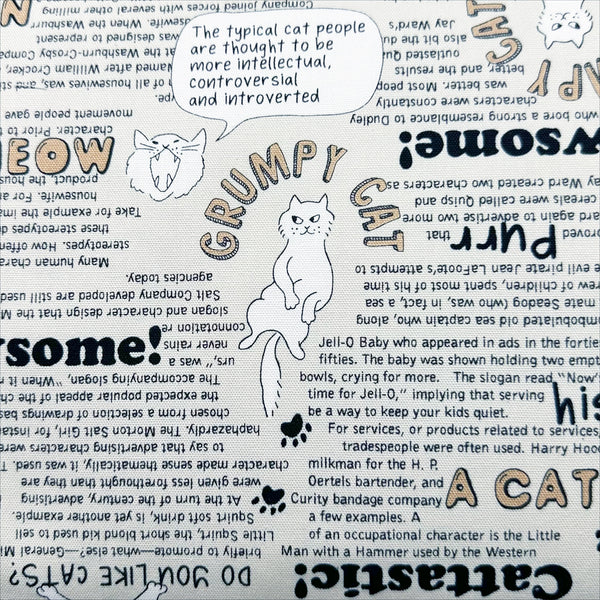 The typical cat people
are thought to be
more intellectual,
controversial
and introverted
GRUMPY CAT
MEOW
PY CAT
wsome!
Purr
wsome!
his
A CAT
Cattastic!
DO YOU LIKE CATS?
Jell-O Baby who appeared in ads in the fortie
fifties. The baby was shown holding two empt
bowls, crying for more. The slogan read "Now's
time for Jell-O," implying that serving
be a way to keep your kids quiet.
For services, or products related to services,
tradespeople were often used. Harry Hood
milkman for the H. P.
Oertels bartender, and
Curity bandage company
a few examples. A
of an occupational character is the Little
Man with a Hammer used by the Western
briefly to promote—what else?—General Mi
Little Squirt, the short blond kid used to sell
Squirt soft drink, is yet another example.
At the turn of the century, advertising
were given less forethought than they are
character made sense thematically, it was used. T
to say that advertising characters were
haphazardly. The Morton Salt Girl, for instan
chosen from a selection of drawings bas
the expected popular appeal of the ch
The accompanying slogan, "When it
urs,", was a
never rains
connotation re
slogan and character design that the M
Salt Company developed are still used
agencies today.
Many human chara
stereotypes. How offen
these stereotypes de
Take for example the ima
housewife. For an
the product, the hous
character. Prior to
movement people gave
of all housewives, was, and st
named after William Crocker,
at the Washburn-Crosby Comp
was designed to represent
housewife. When the Washburn
Company joined forces with
Jay Ward's
also did the bit
outlasted Quis
better, and the results
was better. Most peopl
characters were constantly
who bore a strong resemblance to Dudley
Jay Ward created two characters as
cereals were called Quisp and
ard again to advertise two more
proved that
e evil pirate Jean LaFoote's attempts to
rew of children, spent most of his time
mate Seadog (who was, in fact, a sea
ombobulated old sea captain who, along